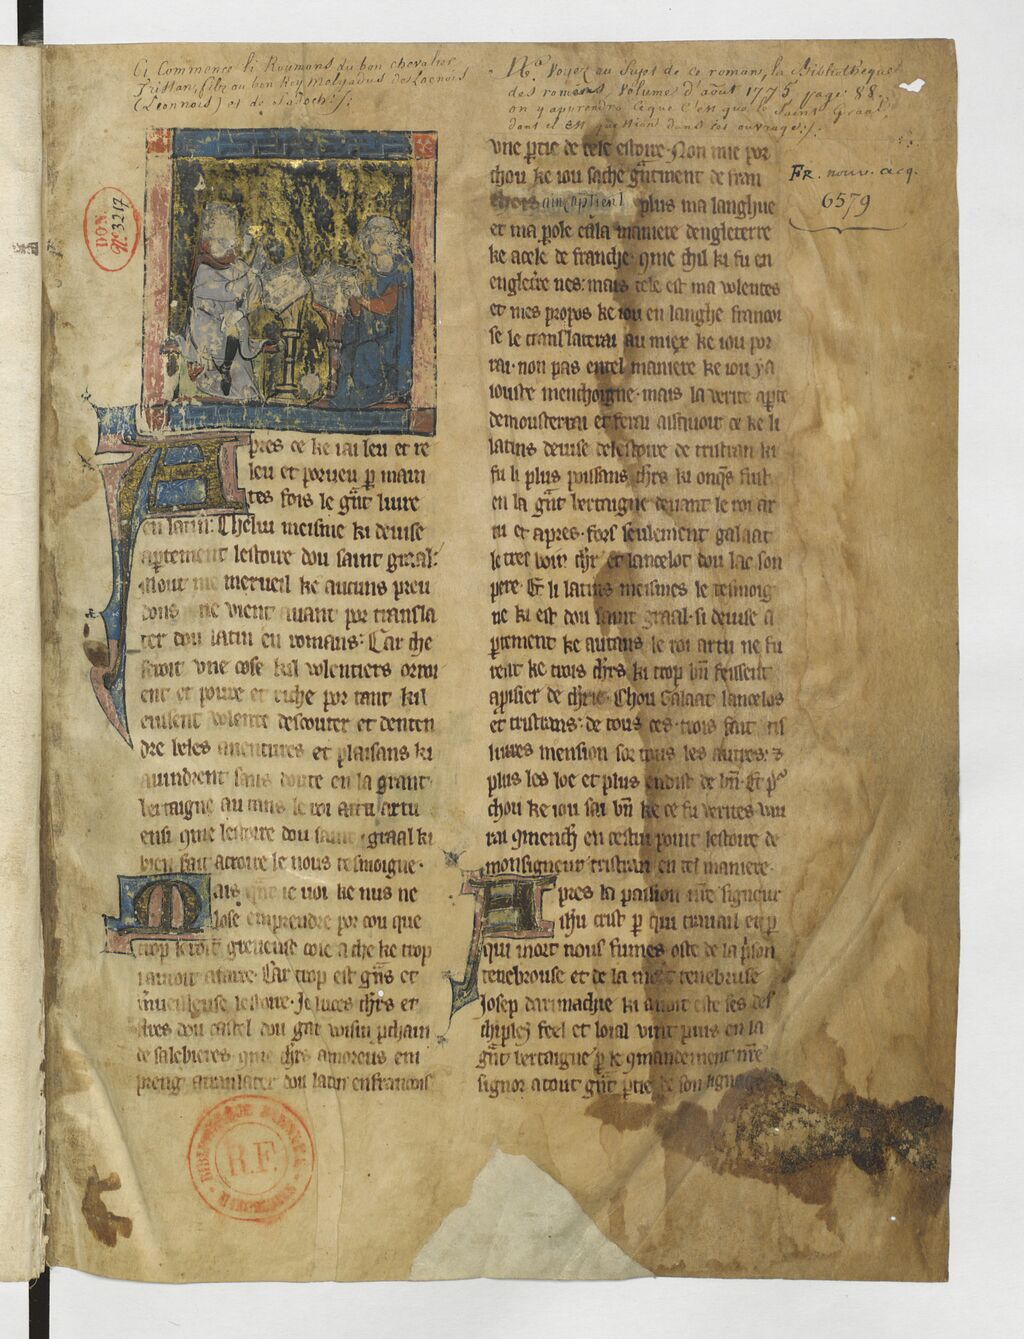 Ci Commence li Roumans du bon chevalier
Tristan, filz au bon Roy Melyadus de Loenois
(Leonnois) et de Sadoch ./.
Na. Voyez au Sujet de ce roman, la Bibliotheque
des romans, Volume d'aout 1775 page: 88.
on y aprendra ce que c'est que le Saint Graal,
dont il est question dans cet ouvrage ./.
FR. nouv. acq.
6579
DON
No 3217
Apres ce ke iai leu et re
leu et porueu p main
tes fois le gnt liure
en latin: Chelui meisme ki deuise
aptement lestoire dou saint graal:
mout me merueil ke aucuns preu
dons ne vient auant por transla
ter dou latin en romans: Car che
seroit vne cose kil volentiers oroi
ent et poure et riche por tant kil
eussent volente descouter et denten
dre beles auentures et plaisans ki
auindrent sans doute en la grant
bertaigne au tans le roi artu
ensi qme lestoire dou saint graal ki
bien fait acroire le nous tesmoigne.
Mais qnt ie voi ke nus ne
lose emprendre por cou que
trop seroit greueuse cose a che ke trop
i auroit afaire. Car trop est gns et
mueilleuse lestoire. Je luces chrs et
sires dou castel dou gat voisin pchain
de salebieres qme chrs amoreus en
preng atranslater dou latin enfrancois
vne ptie de cele estoire. Non mie por
chou ke iou sache gntment de fran
chois plus ma langhue
et ma pole est la maniere dengleterre
ke acele de franche. qme chil ki fu en
engletre nes: mais tele est ma volentes
et mes propos ke iou en langhe francoi
se le translaterai au miex ke iou por
rai. non pas entel maniere ke iou y a
iouste menchoigne. mais la verite apte
demousterrai et ferai
latins deuise delestoire de tristran ki
fu li plus poissans chrs ki onqs fust
en la gnt bertaigne deuant le roi ar
tu et apres. fors seulement galaat
le tres boin chr et lancelot dou lac son
pere. Et li latins meismes le tesmoig
ne ki est dou saint graal. si deuise a
ptement ke autans le roi artu ne fu
rent ke trois chrs ki trop bn feissent
aprisier de chrie. Chou Galaat lancelos
et tristrans. de tous ces trois fait cis
liures mension sor tous les autres.
plus les loe et plus endist de bn. Et p
chou ke iou sai bn ke ce fu verites vau
rai qmench en cestui point lestoire de
monsigneur tristran en tel maniere.
Apres la passion nre signeur
ihu crist p qui trauail et p
qui mort nous fumes oste de la pson
tenebrouse et de la mort tenebruse
Josep darimachie ki auoit este ses des
chiples feel et loial vint puis en la
gnt bertaigne p le qmandement nre
signor a tout gnt ptie de son lignage
R.F.